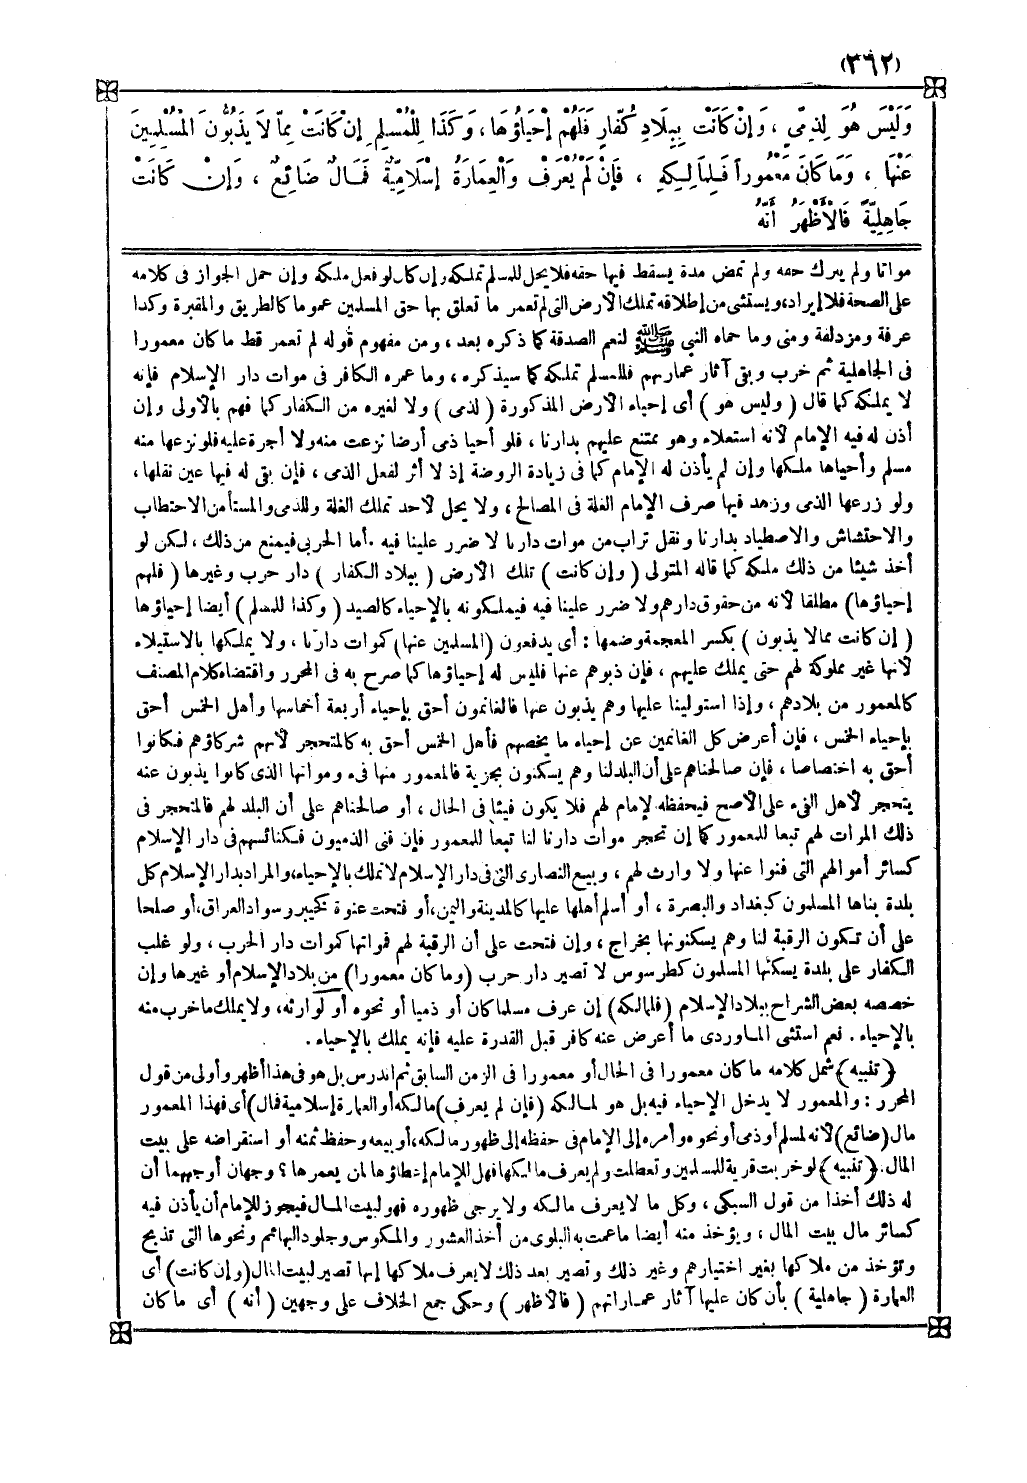 (٣٦٢)
وَلَيْسَ هُوَ لِذِمِّيٍ ، وَإِنْ كَانَتْ بِبِلَادِ كُفَّارٍ فَلَهُمْ إِحْيَاؤُهَا ، وَكَذَا لِلْمُسْلِمِ إِنْ كَانَتْ مِمَّا لَا يَذُبُّونَ الْمُسْلِمِينَ
عَنْهَا ، وَمَا كَانَ مَعْمُوراً فَلِمَالِكِهِ ، فَإِنْ لَمْ يُعْرَفْ وَالْعِمَارَةُ إِسْلَامِيَّةٌ فَمَالٌ ضَائِعٌ ، وَإِنْ كَانَتْ
جَاهِلِيَّةً فَالْأَظْهَرُ أَنَّهُ
مواتا ولم يترك حقه ولم تمض مدة يسقط فيها حقه فلا يحل للمسلم تملكه وإن كان لو فعل ملكه وإن حمل الجواز فى كلامه
على الصحة فلا إيراد، ويستثنى من إطلاقه تملك الأرض التى لم تعمر ما تعلق بها حق المسلمين عموما كالطريق والمقبرة وكذا
عرفة ومزدلفة ومنى وما حماه النبي ﷺ لنعم الصدقة كما ذكره بعد ، ومن مفهوم قوله لم تعمر قط ما كان معمورا
فى الجاهلية ثم خرب وبقى آثار عمارتهم فللمسلم تملكه كما سيذكره ، وما عمره الكافر فى موات دار الإسلام فإنه
لا يملكه كما قال ( وليس هو ) أى إحياء الأرض المذكورة ( لذمى ) ولا لغيره من الكفار كما فهم بالأولى وإن
أذن له فيه الإمام لأنه استعلاء وهو ممتنع عليهم بدارنا ، فلو أحيا ذمى أرضا نزعت منه ولا أجرة عليه فلو نزعها منه
مسلم وأحياها ملكها وإن لم يأذن له الإمام كما فى زيادة الروضة إذ لا أثر لفعل الذمى ، فإن بقى له فيها عين نقلها ،
ولو زرعها الذمى وزهد فيها صرف الإمام الغلة فى المصالح ، ولا يحل لأحد تملك الغلة وللذمى والمستأمن الاحتطاب
والاحتشاش والاصطياد بدارنا ونقل تراب من موات دارنا لا ضرر علينا فيه . أما الحربى فيمنع من ذلك ، لكن لو
أخذ شيئا من ذلك ملكه كما قاله المتولى ( وإن كانت ) تلك الأرض ( ببلاد الكفار ) دار حرب وغيرها ( فلهم
إحياؤها ) مطلقا لأنه من حقوق دارهم ولا ضرر علينا فيه فيملكونه بالإحياء كالصيد ( وكذا للمسلم ) أيضا إحياؤها
( إن كانت مما لا يذبون ) بكسر المعجمة وضمها : أى يدفعون (المسلمين عنها) كموات دارنا ، ولا يملكها بالاستيلاء
لأنها غير مملوكة لهم حتى يملك عليهم ، فإن ذبوهم عنها فليس له إحياؤها كما صرح به فى المحرر واقتضاه كلام المصنف
كالمعمور من بلادهم ، وإذا استولينا عليها وهم يذبون عنها فالغانمون أحق بإحياء أربعة أخماسها وأهل الخمس أحق
بإحياء الخمس ، فإن أعرض كل الغانمين عن إحياء ما يخصهم فأهل الخمس أحق به كالمتحجر لأنهم شركاؤهم فكانوا
أحق به اختصاصا ، فإن صالحناهم على أن البلد لنا وهم يسكنون بجزية فالمعمور منها فىء ومواتها الذى كانوا يذبون عنه
يتحجر لأهل الفىء على الأصح فيحفظه الإمام لهم فلا يكون فيئا فى الحال ، أو صالحناهم على أن البلد لهم فالمتحجر فى
ذلك الموات لهم تبعا للمعمور كما إن تحجر موات دارنا لنا تبعا للمعمور فإن فنى الذميون فكنائسهم فى دار الإسلام
كسائر أموالهم التى فنوا عنها ولا وارث لهم ، وبيع النصارى التى فى دار الإسلام لا تملك بالإحياء، والمراد بدار الإسلام كل
بلدة بناها المسلمون كبغداد والبصرة ، أو أسلم أهلها عليها كالمدينة واليمن، أو فتحت عنوة كخيبر وسواد العراق، أو صلحا
على أن تكون الرقبة لنا وهم يسكنونها بخراج ، وإن فتحت على أن الرقبة لهم فمواتها كموات دار الحرب ، ولو غلب
الكفار على بلدة يسكنها المسلمون كطرسوس لا تصير دار حرب (وما كان معمورا) من بلاد الإسلام أو غيرها وإن
خصصه بعض الشراح ببلاد الإسلام (فلمالكه) إن عرف مسلما كان أو ذميا أو نحوه أو لوارثه، ولا يملك ما خرب منه
بالإحياء . نعم استثنى الماوردى ما أعرض عنه كافر قبل القدرة عليه فإنه يملك بالإحياء .
( تنبيه ) شمل كلامه ما كان معمورا فى الحال أو معمورا فى الزمن السابق ثم اندرس بل هو فى هذا أظهر وأولى من قول
المحرر : والمعمور لا يدخل الإحياء فيه بل هو لمالكه (فإن لم يعرف) مالكه (والعمارة إسلامية فمال) أى فهذا المعمور
مال (ضائع) لأنه لمسلم أو ذمى أو نحوه وأمره إلى الإمام فى حفظه إلى ظهور مالكه، أو بيعه وحفظ ثمنه أو استقراضه على بيت
المال. ( تنبيه ) لو خربت قرية للمسلمين وتعطلت ولم يعرف مالكها فهل للإمام إعطاؤها لمن يعمرها ؟ وجهان أوجههما أن
له ذلك أخذا من قول السبكى ، وكل ما لا يعرف مالكه ولا يرجى ظهوره فهو لبيت المال فيجوز للإمام أن يأذن فيه
كسائر مال بيت المال ، ويؤخذ منه أيضا ما عمت به البلوى من أخذ العشور والمكوس وجلود البهائم ونحوها التى تذبح
وتؤخذ من ملاكها بغير اختيارهم وغير ذلك وتصير بعد ذلك لا يعرف ملاكها إنها تصير لبيت المال (وإن كانت) أى
العمارة ( جاهلية ) بأن كان عليها آثار عمارتهم ( فالأظهر ) وحكى جمع الخلاف على وجهين ( أنه ) أى ما كان